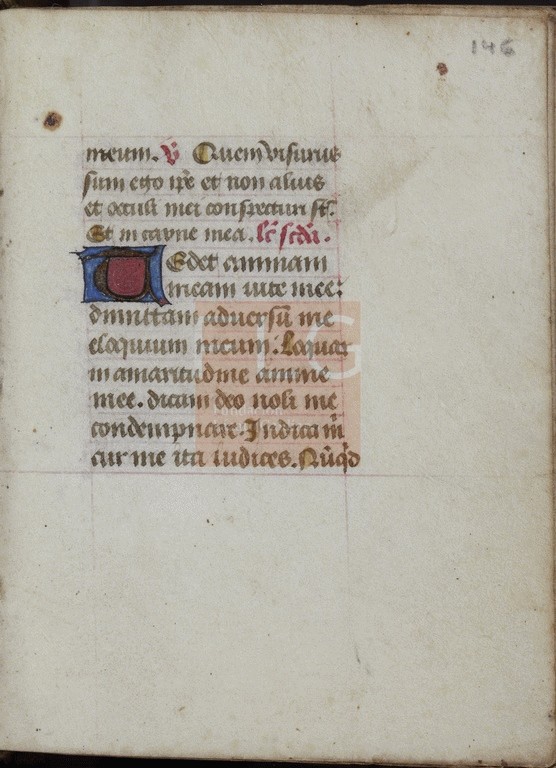 146
meum. V Quem visurus
sum ego ipe et non alius
et occuli mei conspecturi st.
Et in carne mea. lc scda.
Tedet animam
meam uite mee:
dimittam adversū me
eloquium meum. Loquar
in amaritudine anime
mee. dicam deo noli me
condempnare. Indica m
cur me ita iudices. Nūqd